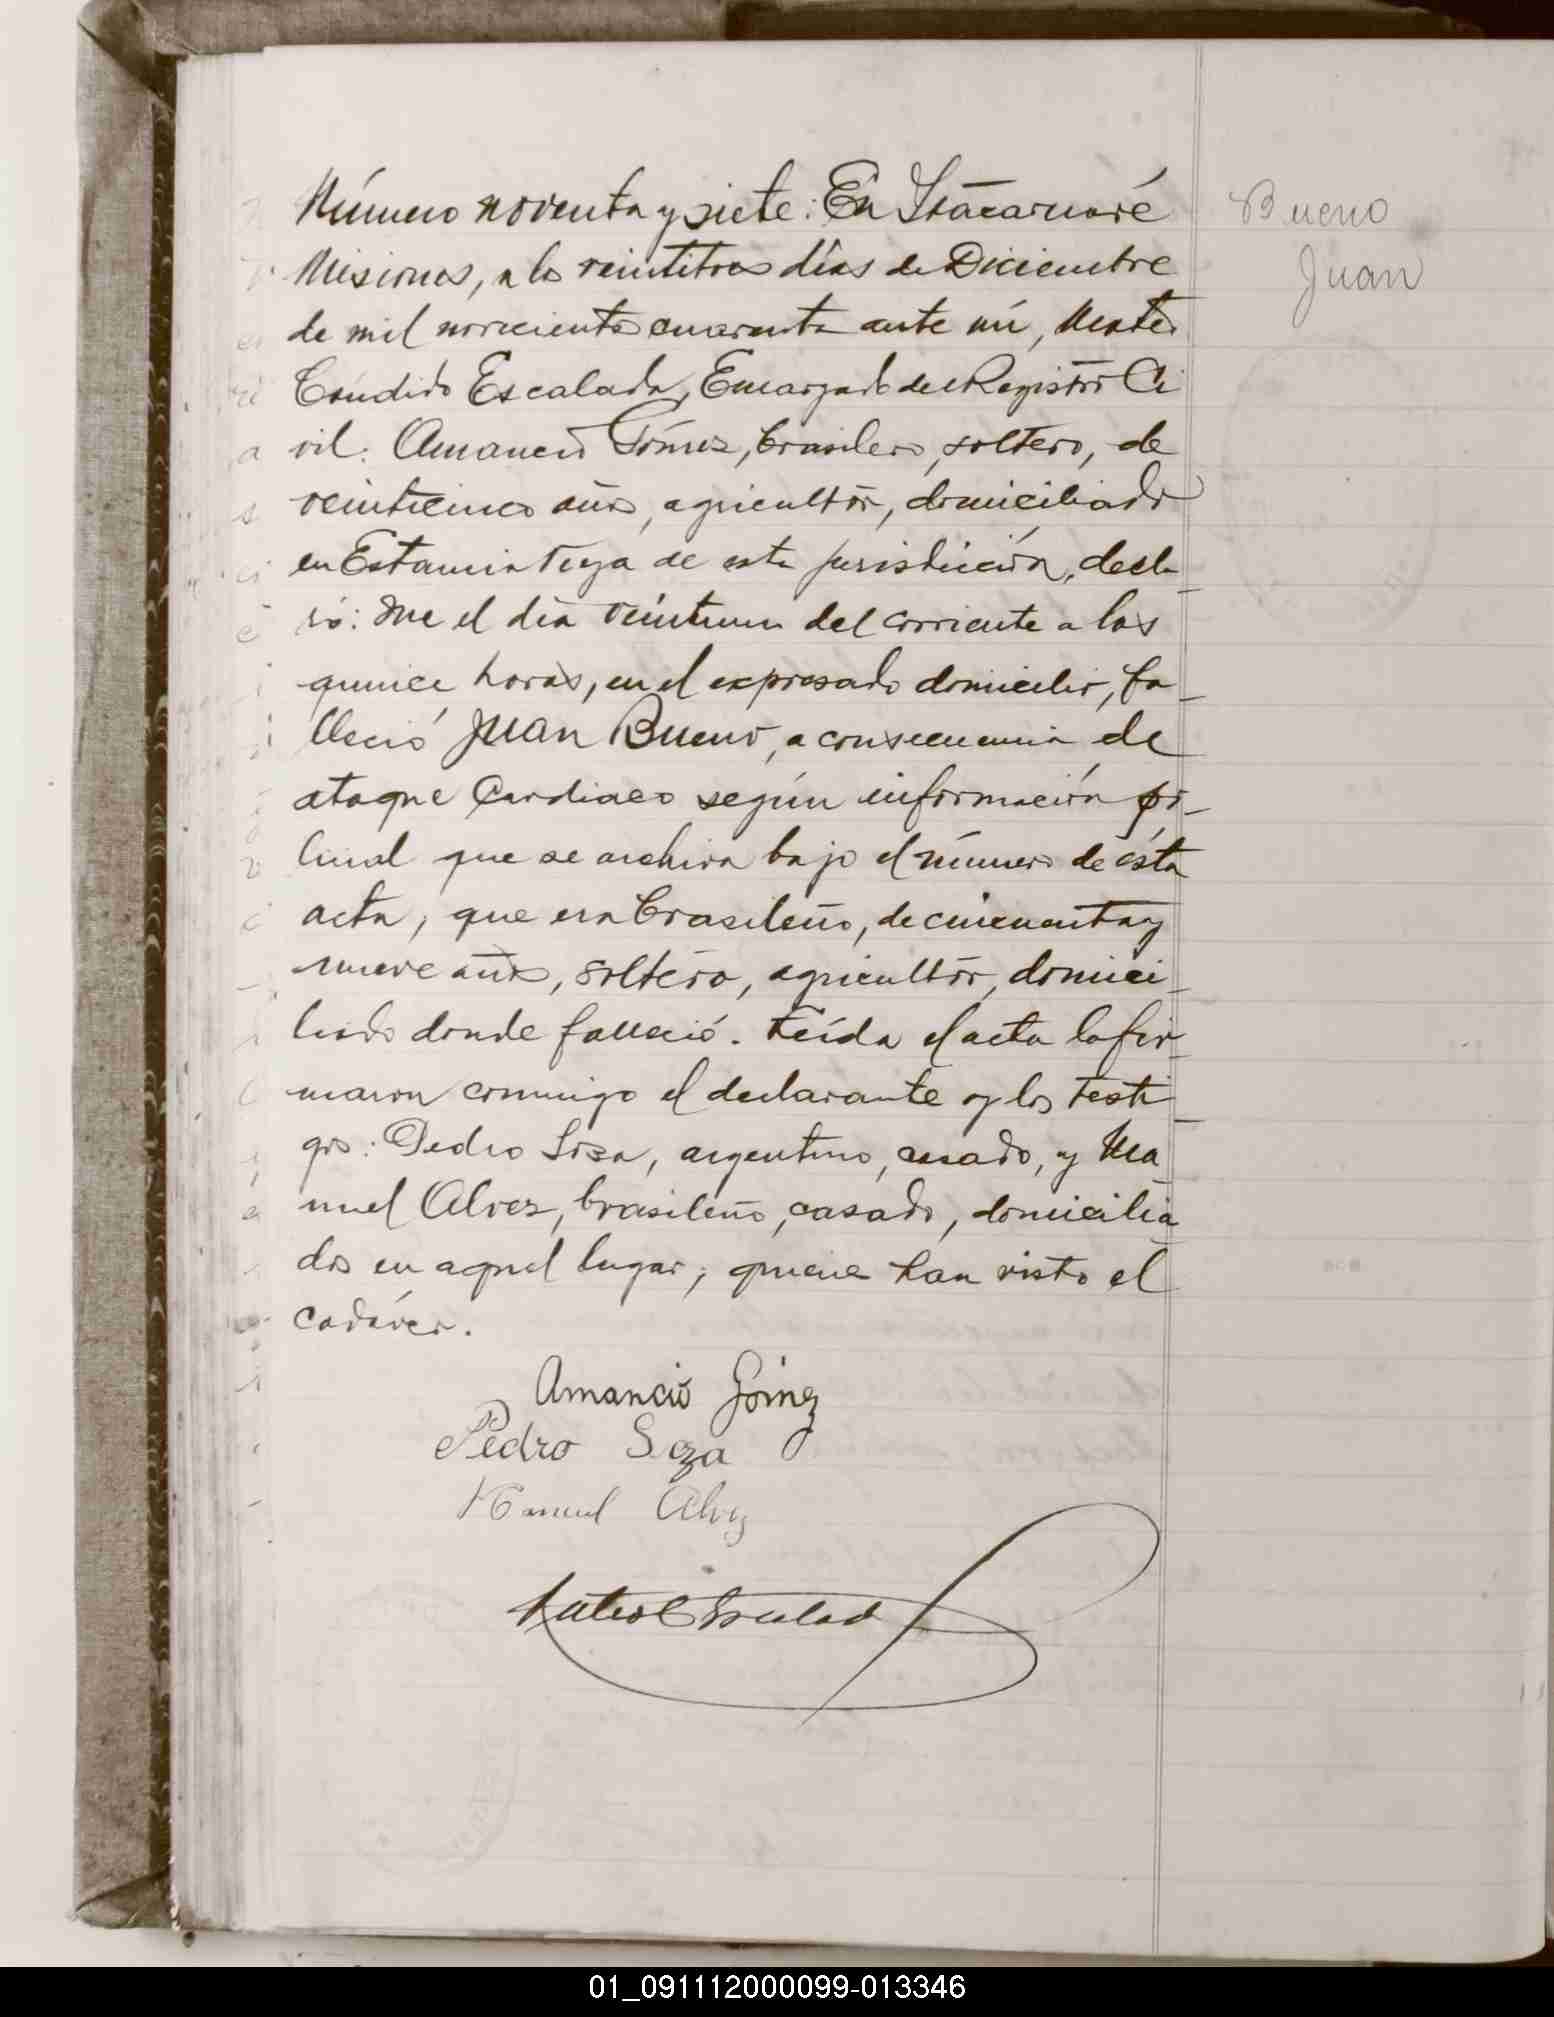 Número noventa y siete: En Itacaruaré
Bueno
Juan
Misiones, a los veintitres días de Diciembre
de mil novecientos cuarenta ante mí, Mateo
Cándido Escalada, Encargado del Registro Ci
vil: Amancio Gómez, brasilero, soltero, de
veinticinco años, agricultor, domiciliado
en Estancia de esta jurisdicción, decla
ró: Que el día veintiuno del corriente a las
quince horas, en el expresado domicilio, fa-
lleció Juan Bueno, a consecuencia de
ataque Cardiaco según información po-
licial que se archiva bajo el número de ésta
acta, que era brasileño, de cincuenta y
nueve años, soltero, agricultor, domici-
liado donde falleció. Leída el acta la fir-
maron conmigo el declarante y los testi-
gos: Pedro Soza, argentino, casado, y Ma
nuel Alvez, brasileño, casado, domicilia
dos en aquel lugar, quienes han visto el
cadáver.
Amancio Gómez
Pedro Soza
Manuel Alvez
Mateo C Escalada
01_091112000099-013346